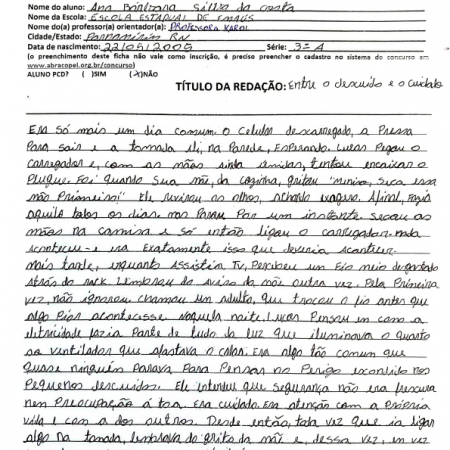 Nome do aluno: Ana
Nome da Escola: ESCOLA ESTADUAL DE
Nome do(a) professor(a) orientador(a): PROFESSORA KAROL
Cidade/Estado: PARNAMIRIM RN
Data de nascimento: 22/05/2005 Série: 3ª A
(o preenchimento deste ficha não vale como inscrição, é preciso preencher o cadastro no sistema do concurso em
www.abracopel.org.br/concurso)
ALUNO PCD? ( )SIM (X)NÃO
TÍTULO DA REDAÇÃO: Entre o descuido e o cuidado
Era só mais um dia comum. O celular descarregado, a pressa
para sair e a tomada ali, na parede, esperando. Lucas pegou o
carregador e, com as mãos ainda úmidas, tentou encaixar o
plugue. Foi quando sua mãe, da cozinha, gritou "Menino, seca essa
mão primeiro!" Ele revirou os olhos, achando exagero. Afinal, fazia
aquilo todos os dias. mas parou por um instante, secou as
mãos na camisa e só então ligou o carregador. nada
aconteceu - e era exatamente isso que deveria acontecer.
mais tarde, enquanto assistia TV, percebeu um fio meio desgastado
atrás do rack. Lembrou do aviso da mãe outra vez. Pela primeira
vez, não ignorou. chamou um adulto, que trocou o fio antes que
algo pior acontecesse. naquela noite, Lucas pensou em como a
eletricidade fazia parte de tudo da luz que iluminava o quarto
ao ventilador que afastava o calor. Era algo tão comum que
quase ninguém parava para pensar no perigo escondido nos
pequenos descuidos. Ele entendeu que segurança não era frescura
nem preocupação à toa. Era cuidado. Era atenção com a própria
vida e com a dos outros. Desde então, toda vez que ia ligar
algo na tomada, lembrava do grito da mãe e, dessa vez, em vez